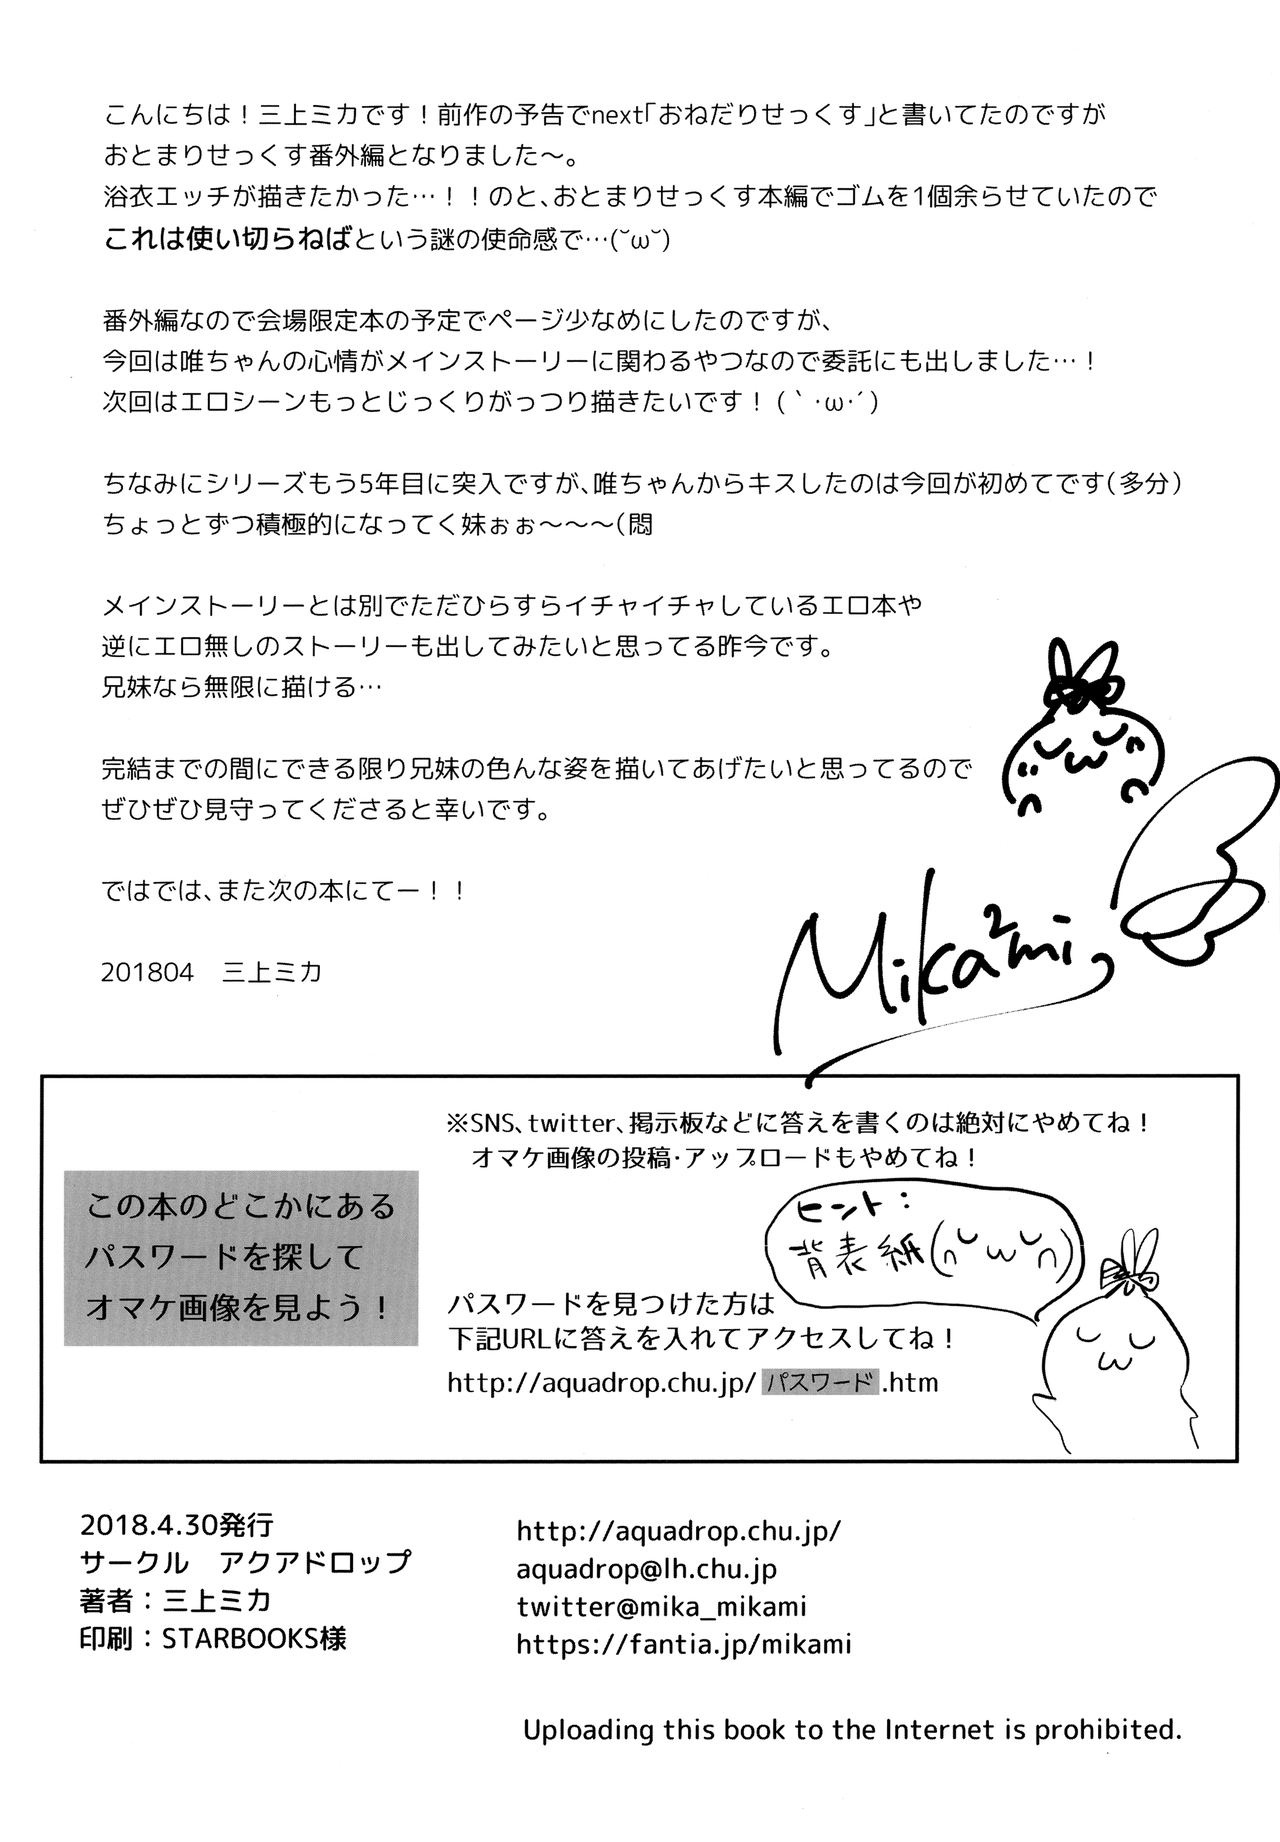 こんにちは！三上ミカです！前作の予告でnext「おねだりせっくす」と書いてたのですが
おとまりせっくす番外編となりました～。
浴衣エッチが描きたかった…！！のと、おとまりせっくす本編でゴムを1個余らせていたので
これは使い切らねばという謎の使命感で…(˘ω˘)
番外編なので会場限定本の予定でページ少なめにしたのですが、
今回は唯ちゃんの心情がメインストーリーに関わるやつなので委託にも出しました…！
次回はエロシーンもっとじっくりがっつり描きたいです！(｀･ω･´)
ちなみにシリーズもう5年目に突入ですが、唯ちゃんからキスしたのは今回が初めてです（多分）
ちょっとずつ積極的になってく妹ぉぉ～～～（悶
メインストーリーとは別でただひらすらイチャイチャしているエロ本や
逆にエロ無しのストーリーも出してみたいと思ってる昨今です。
兄妹なら無限に描ける…
完結までの間にできる限り兄妹の色んな姿を描いてあげたいと思ってるので
ぜひぜひ見守ってくださると幸いです。
ではでは、また次の本にてー！！
201804　三上ミカ
Mika²mi
※SNS、twitter、掲示板などに答えを書くのは絶対にやめてね！
オマケ画像の投稿・アップロードもやめてね！
この本のどこかにある
パスワードを探して
オマケ画像を見よう！
ヒント：
背表紙(∩˘ω˘∩)
パスワードを見つけた方は
下記URLに答えを入れてアクセスしてね！
http://aquadrop.chu.jp/パスワード.htm
2018.4.30発行
サークル　アクアドロップ
著者：三上ミカ
印刷：STARBOOKS様
http://aquadrop.chu.jp/
aquadrop@lh.chu.jp
twitter@mika_mikami
https://fantia.jp/mikami
Uploading this book to the Internet is prohibited.